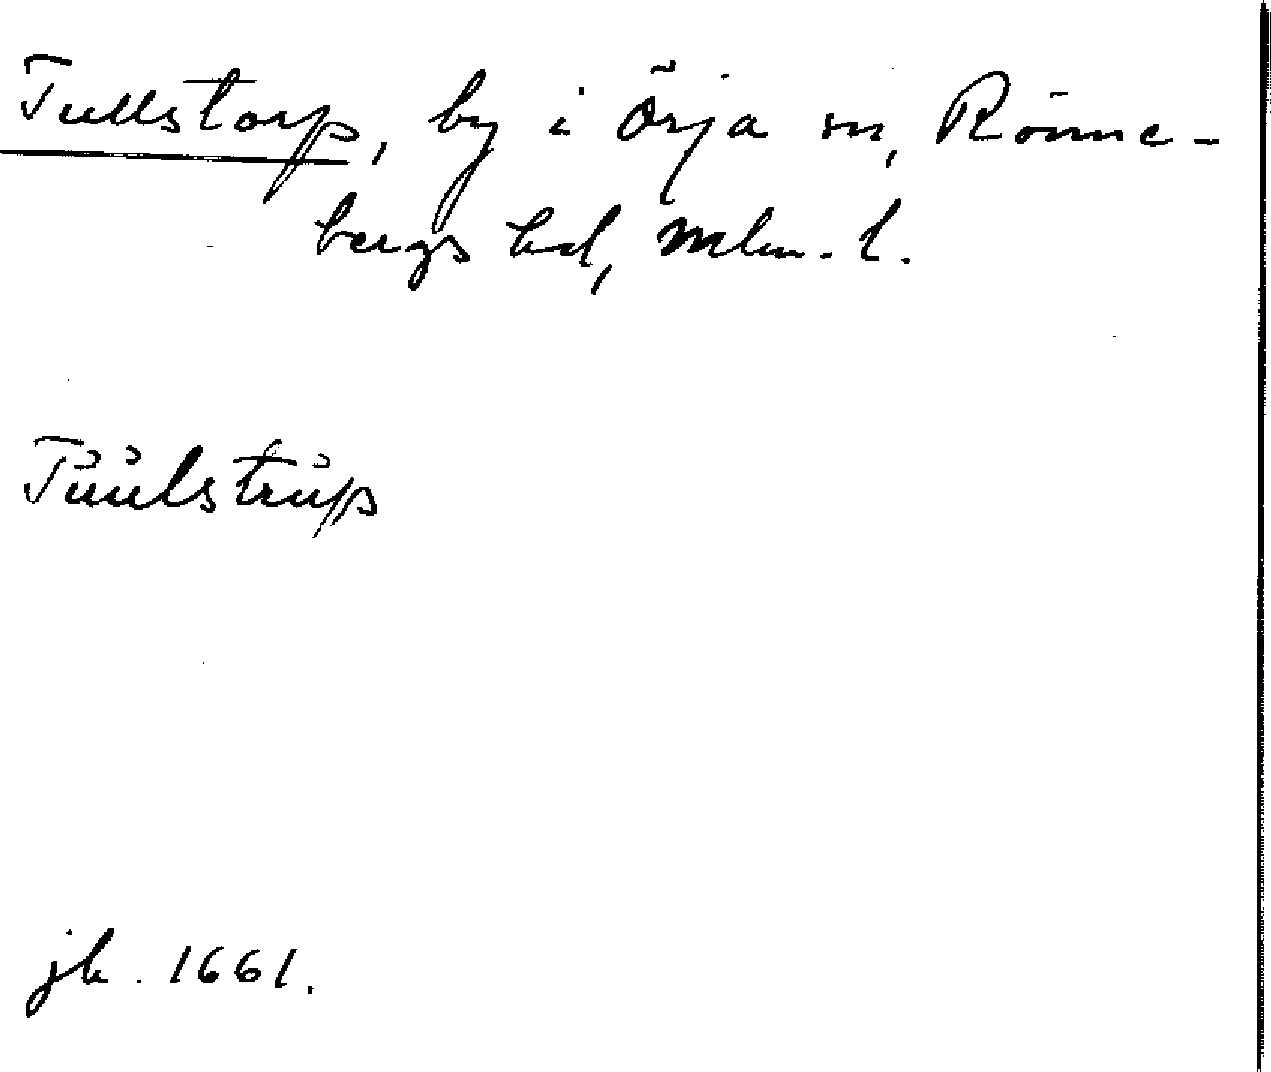 Tullstorp, by i Örja sn, Rönne-
bergs hd, Mlm. l.
Tůůlstrůp
jb. 1661.